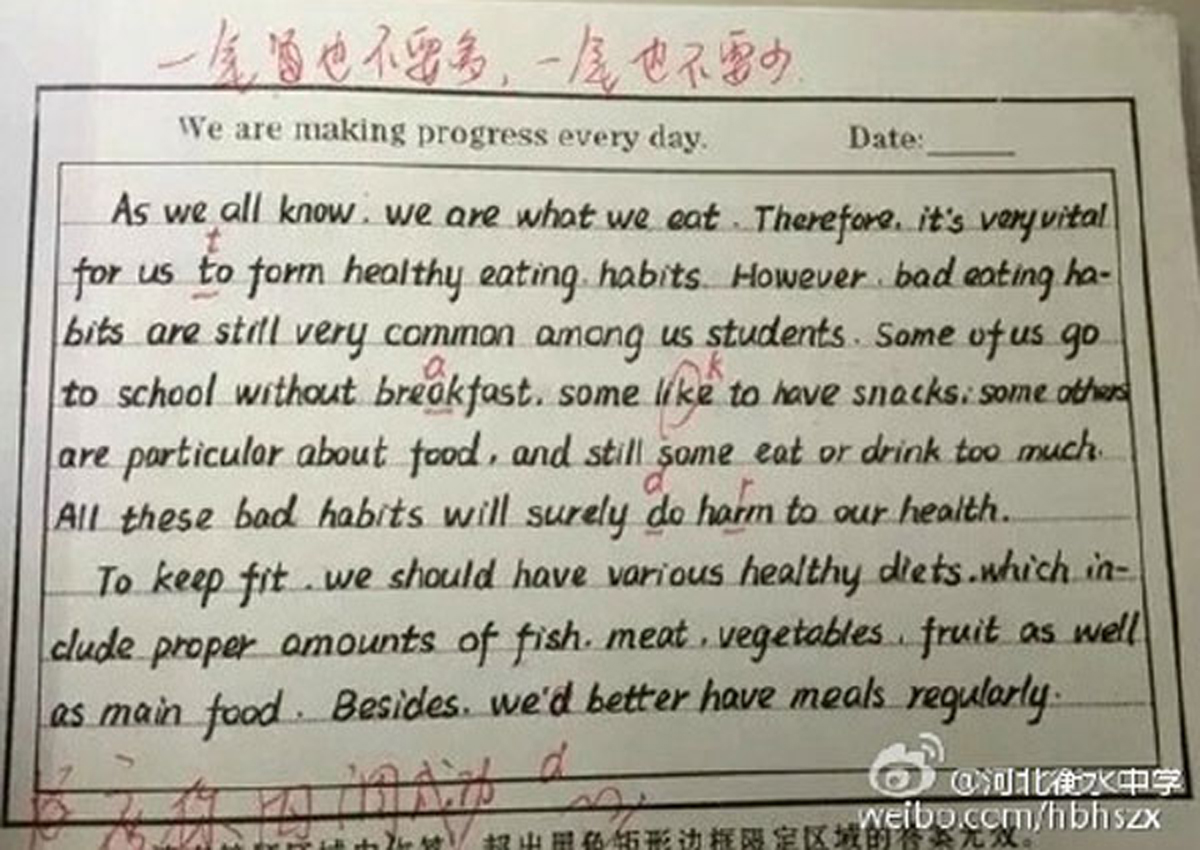 一尾酒也不要多，一尾也不要少
We are making progress every day. Date:
As we all know, we are what we eat. Therefore, it's very vital
t
for us to form healthy eating habits. However, bad eating ha-
bits are still very common among us students. Some of us go
a k
to school without breakfast, some like to have snacks; some others
are particular about food, and still some eat or drink too much.
d r
All these bad habits will surely do harm to our health.
To keep fit, we should have various healthy diets, which in-
clude proper amounts of fish, meat, vegetables, fruit as well
as main food. Besides, we'd better have meals regularly.
你的 成功 d
超出黑色矩形边框限定区域的答案无效。
@河北衡水中学
weibo.com/hbhszx